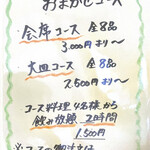 おまかせコース
会席コース 全8品
3,000円より〜
大皿コース 全8品
2,500円より〜
コース料理4名様から
飲み放題 2時間
1,500円